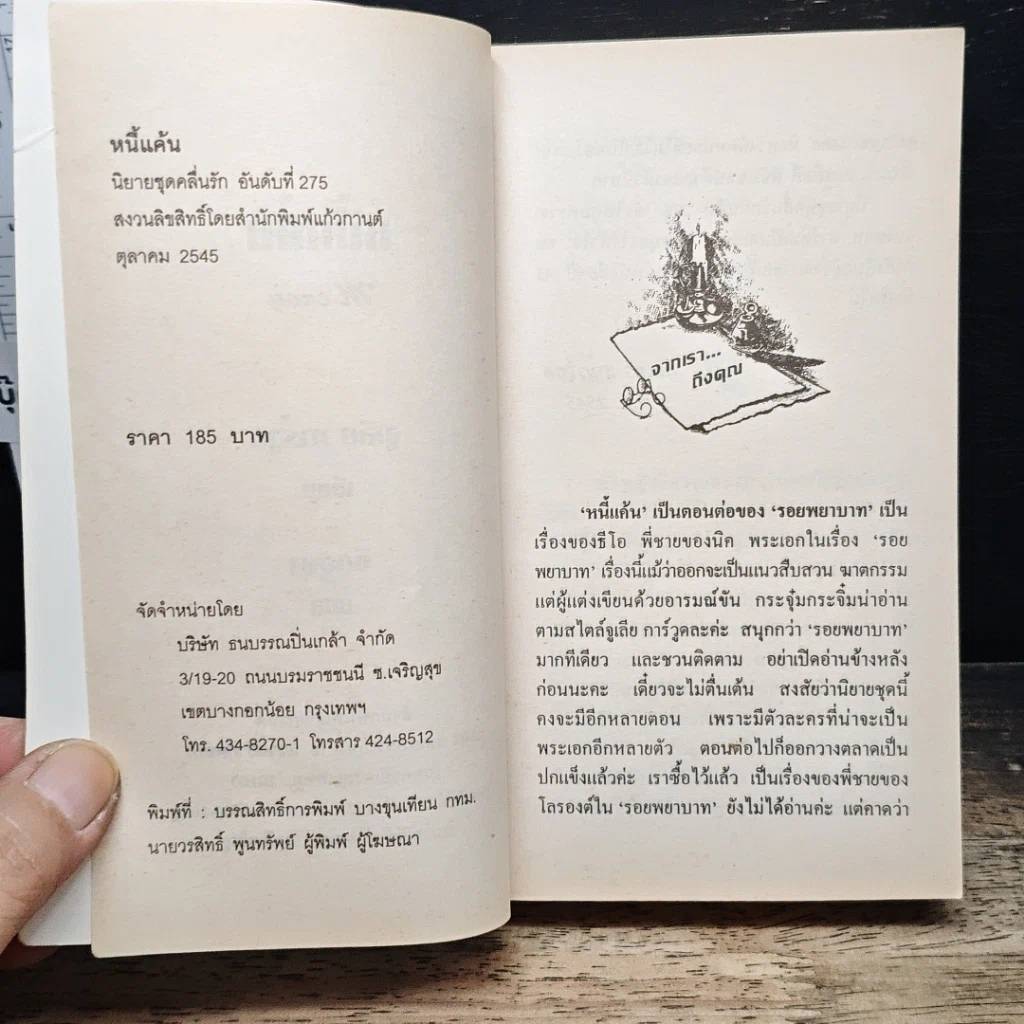 หนี้แค้น
นิยายชุดคลื่นรัก อันดับที่ 275
สงวนลิขสิทธิ์โดยสำนักพิมพ์แก้วกานต์
ตุลาคม 2545
ราคา 185 บาท
จัดจำหน่ายโดย
บริษัท ธนบรรณปิ่นเกล้า จำกัด
3/19-20 ถนนบรมราชชนนี ซ.เจริญสุข
เขตบางกอกน้อย กรุงเทพฯ
โทร. 434-8270-1 โทรสาร 424-8512
พิมพ์ที่ : บรรณสิทธิ์การพิมพ์ บางขุนเทียน กทม.
นายวรสิทธิ์ พูนทรัพย์ ผู้พิมพ์ ผู้โฆษณา
จากเรา...
ถึงคุณ
'หนี้แค้น' เป็นตอนต่อของ 'รอยพยาบาท' เป็น
เรื่องของธีโอ พี่ชายของนิค พระเอกในเรื่อง 'รอย
พยาบาท' เรื่องนี้แม้ว่าออกจะเป็นแนวสืบสวน ฆาตกรรม
แต่ผู้แต่งเขียนด้วยอารมณ์ขัน กระจุ๋มกระจิ๋มน่าอ่าน
ตามสไตล์จูเลีย การ์วูดละค่ะ สนุกกว่า 'รอยพยาบาท'
มากทีเดียว และชวนติดตาม อย่าเปิดอ่านข้างหลัง
ก่อนนะคะ เดี๋ยวจะไม่ตื่นเต้น สงสัยว่านิยายชุดนี้
คงจะมีอีกหลายตอน เพราะมีตัวละครที่น่าจะเป็น
พระเอกอีกหลายตัว ตอนต่อไปก็ออกวางตลาดเป็น
ปกแข็งแล้วค่ะ เราซื้อไว้แล้ว เป็นเรื่องของพี่ชายของ
โลรองต์ใน 'รอยพยาบาท' ยังไม่ได้อ่านค่ะ แต่คาดว่า